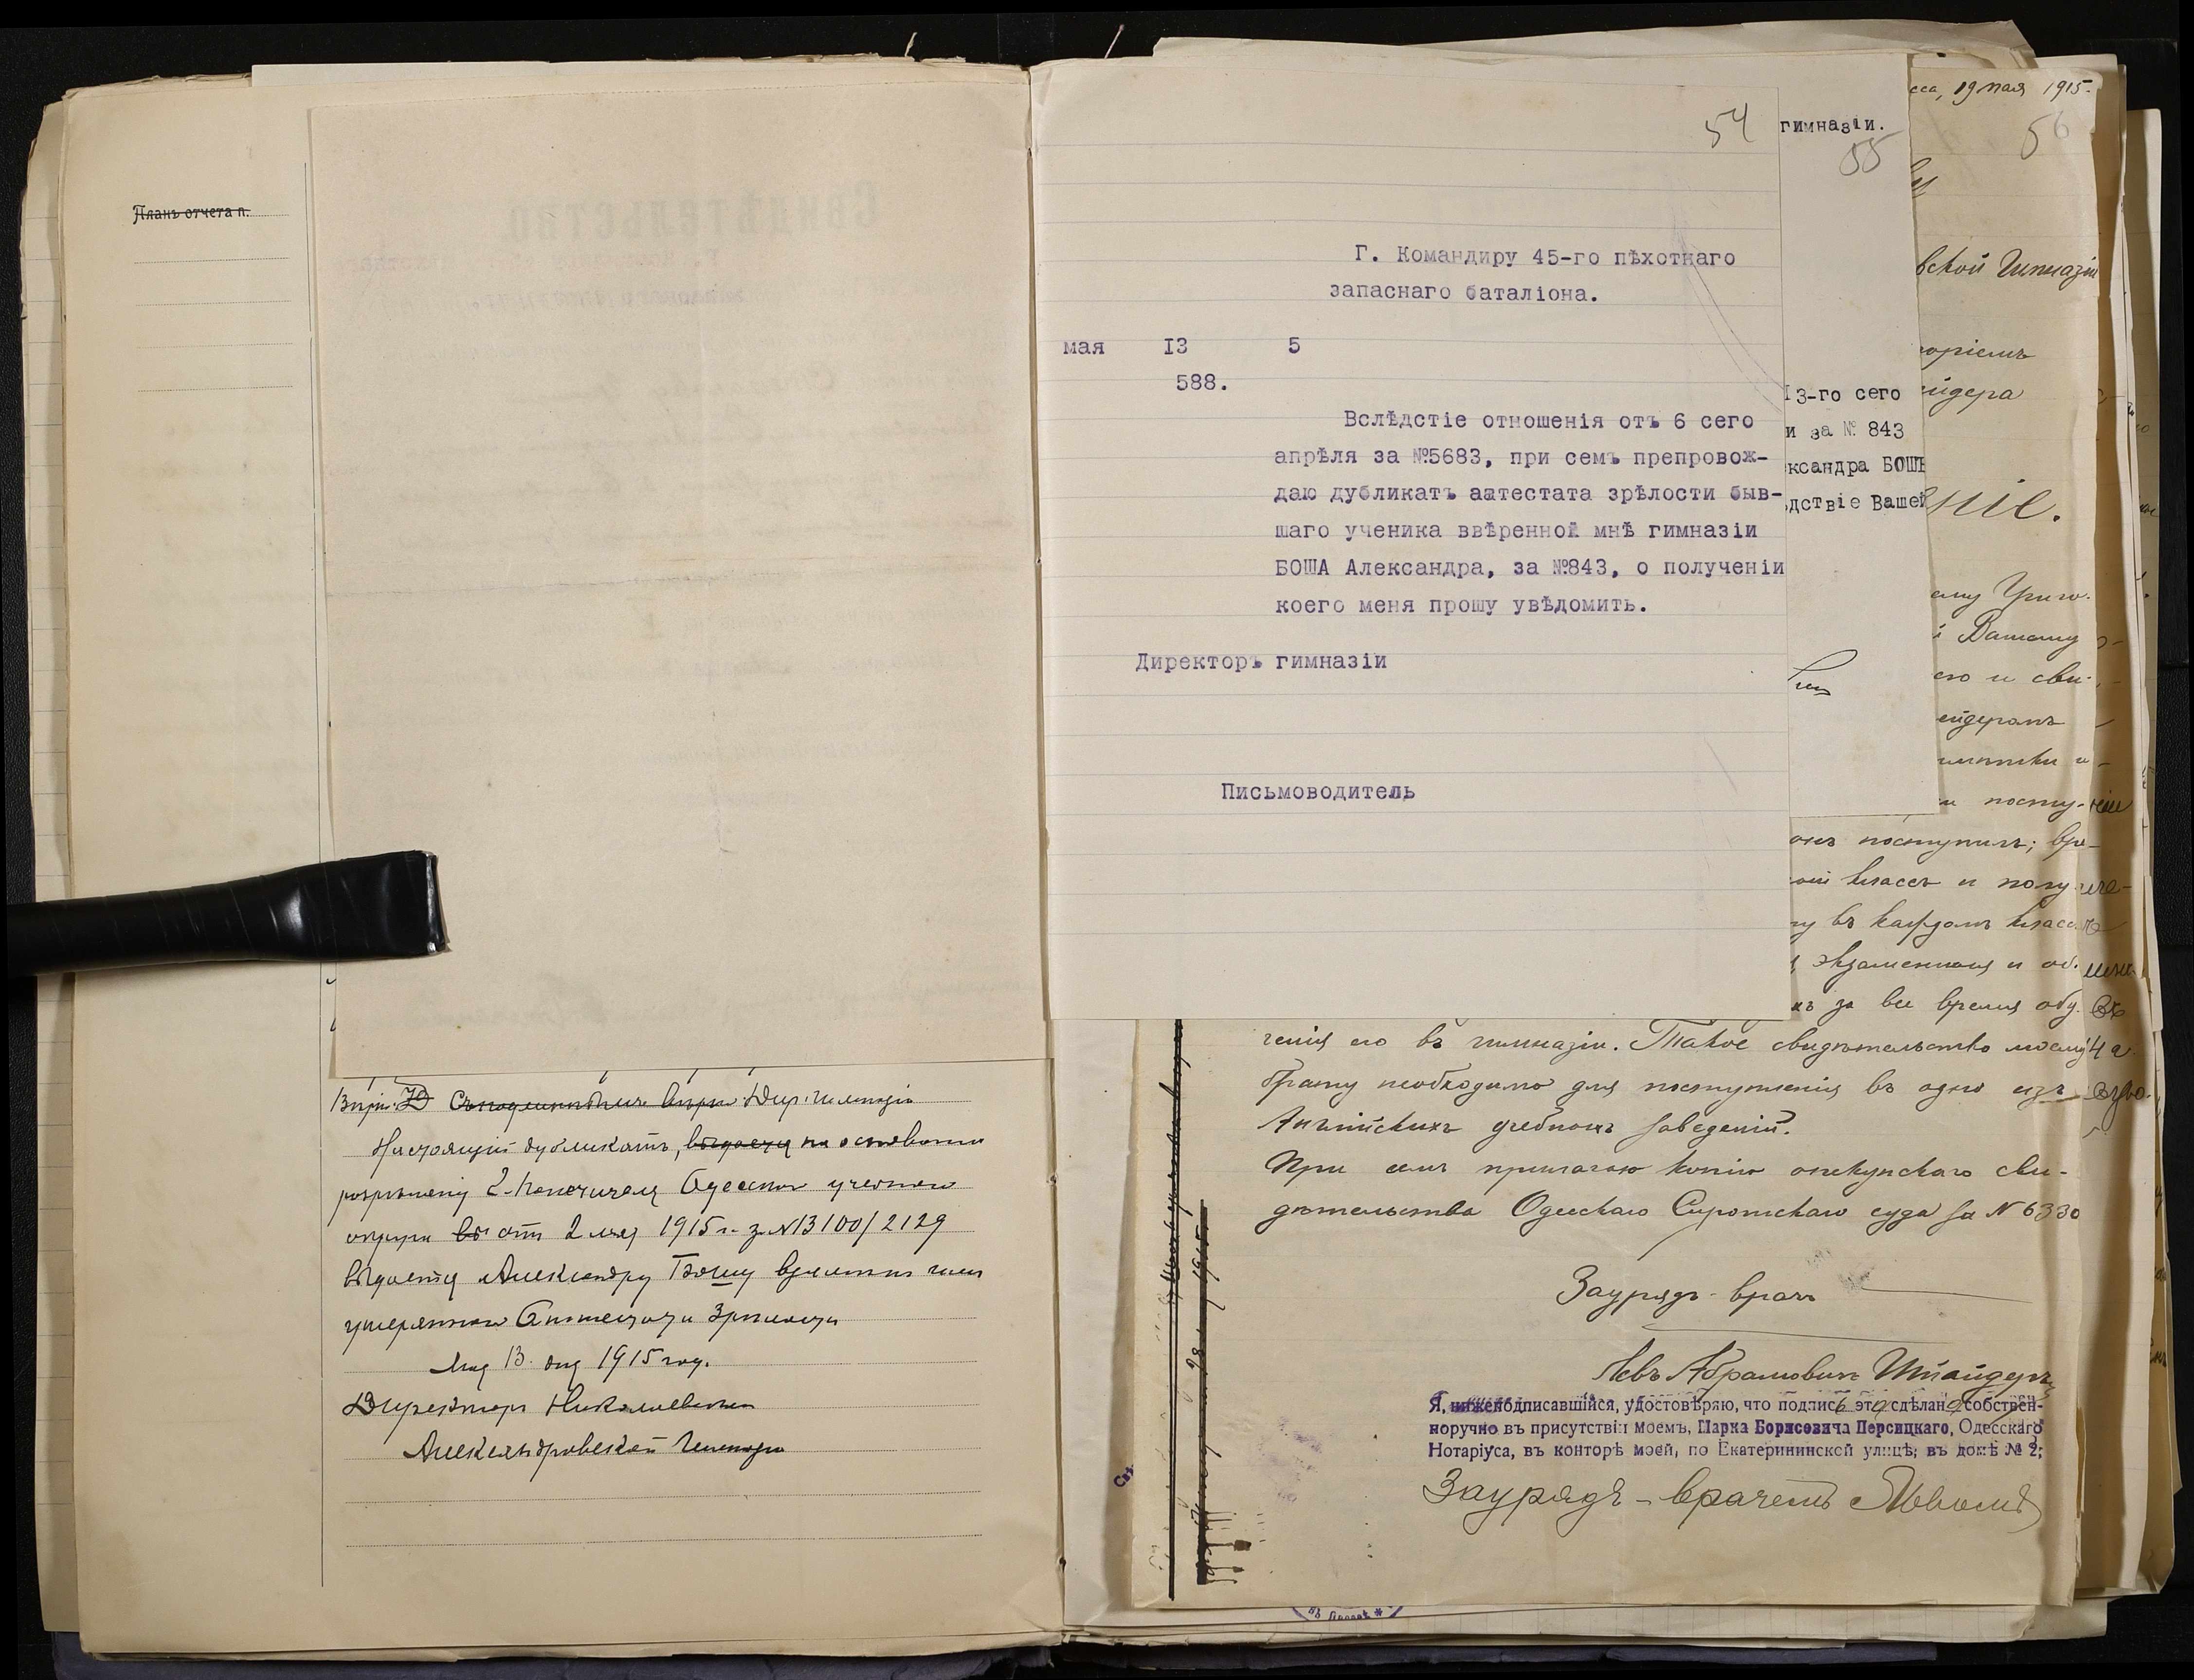 Планъ отчета п.
Вѣрно: Дир. гимназіи
Настоящій дубликатъ, выдается на основаніи
разрѣшенія Г. Попечителя Одесскаго учебнаго
округа въ отъ 2 мая 1915 г. за № 13100/2129
выдается Александру Бошу взамѣнъ имъ
утеряннаго Аттестата Зрѣлости
Мая 13 дня 1915 года.
Директоръ Николаевской
Александровской Гимназіи
54
Г. Командиру 45-го пѣхотнаго
запаснаго баталіона.
мая I3 5
588.
Вслѣдствіе отношенія отъ 6 сего
апрѣля за №5683, при семъ препровож-
даю дубликатъ аттестата зрѣлости быв-
шаго ученика ввѣренной мнѣ гимназіи
БОША Александра, за №843, о полученіи
коего меня прошу увѣдомить.
Директоръ гимназіи
Письмоводитель
гимназіи.
55
I3-го сего
и за № 843
ксандра БОШЪ
ѣдствіе Вашей
сса, 19 мая 1915.
56
вской Гимназіи
торіемъ
ейдера
ніе.
ему Григо-
й Вашему
его и сви-
ейдеромъ
и посту-
онъ поступилъ; вре-
кой классъ и полу-
ну въ каждомъ классѣ
экзаменныя и об.
хъ за все время обу-
ченія его въ гимназіи. Такое свидѣтельство моему
брату необходимо для поступленія въ одно изъ
Англійскихъ учебныхъ заведеній.
При семъ прилагаю копію опекунскаго сви-
дѣтельства Одесскаго Сиротскаго суда за № 6330
Заурядъ-врачъ
Левъ Абрамовичъ Шнайдеръ
Я, нижеподписавшійся, удостовѣряю, что подпись эта сдѣлана собствен-
норучно въ присутствіи моемъ, Марка Борисовича Персицкаго, Одесскаго
Нотаріуса, въ конторѣ моей, по Екатерининской улицѣ, въ домѣ № 2;
Заурядъ-врачемъ Львомъ